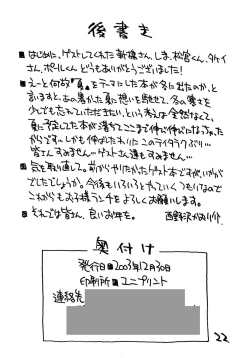 後書き
■はじめに、ゲストしてくれた新橋さん、しま、松宮くん、タケイ
さん、ポールくんどうもありがとうございました！
■えーと何故『夏』をテーマにした本が冬に出たのか、と
言いますと、あの暑かった夏に想いを馳せて、冬の寒さを
少しでも忘れていただきたい、という考えは全然なくて、
夏に予定してた本が落ちてここまで伸び伸びになった
からですっ。しかも伸ばしたわりにこのテイタラクぶり…
皆さんすみません…ゲストさん達もすみません…
■気を取り直して。前からやりたかったゲスト本ですが、いかが
でしたでしょうか。今後もいろいろとやっていくつもりなので
これからもお子様ランチをよろしくお願いします。
■それでは皆さん、良いお年を。
奥付け
発行日■2003年12月30日
印刷所■ユニプリント
連絡先
22